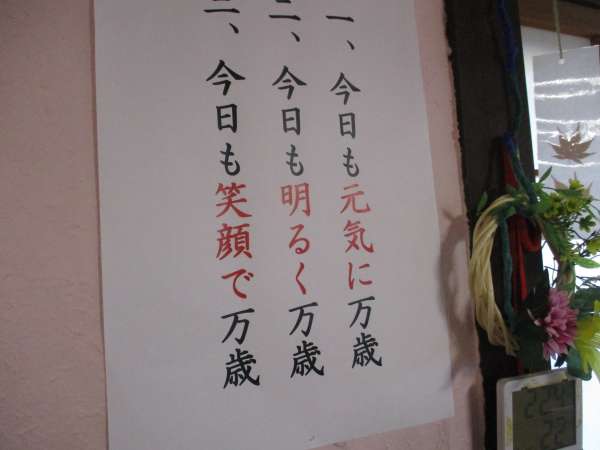 一、今日も元気に万歳
二、今日も明るく万歳
三、今日も笑顔で万歳
22